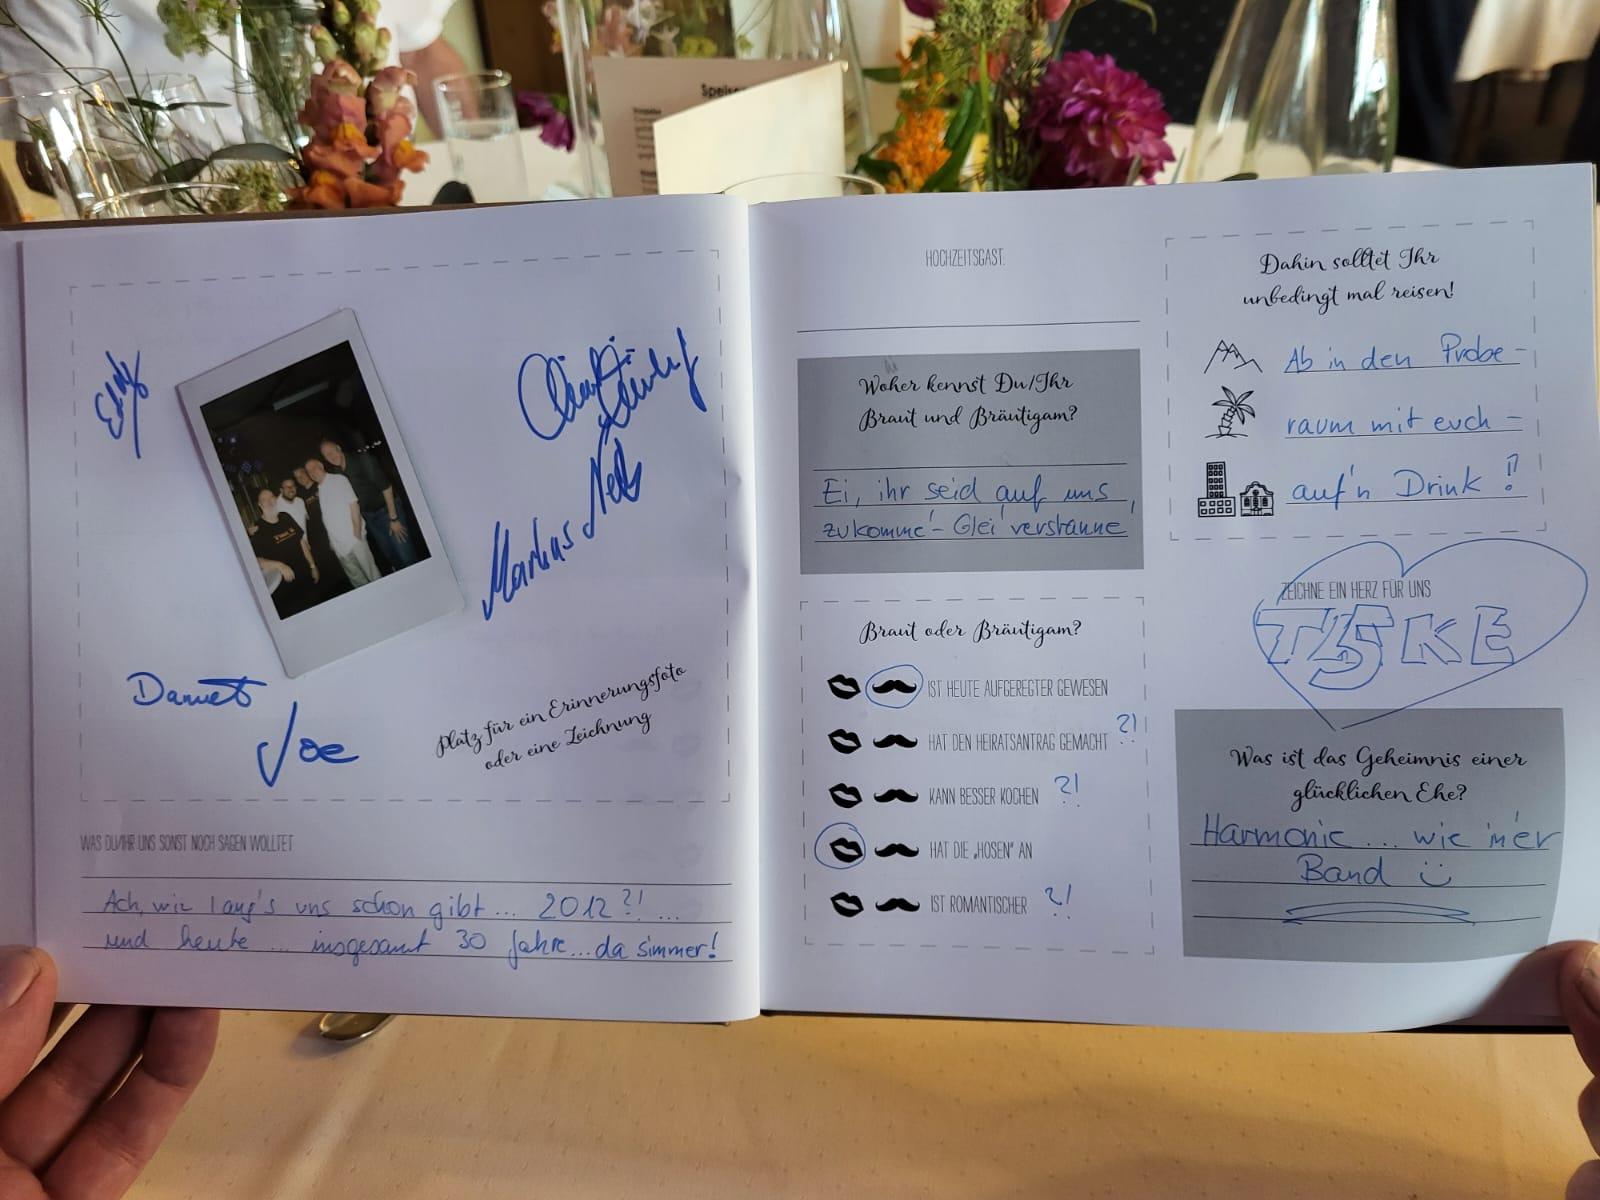 Speise
Eddy
Markus
Daniel
Joe
Platz für ein Erinnerungsfoto
oder eine Zeichnung
WAS DU/IHR UNS SONST NOCH SAGEN WOLLTET
Ach, wie lang's uns schon gibt... 2012?! ...
und heute ... insgesamt 30 Jahre...da simmer!
HOCHZEITSGAST:
Woher kennst Du/Ihr
Braut und Bräutigam?
Ei, ihr seid auf uns
zukomme' - Glei' verstanne'
Braut oder Bräutigam?
IST HEUTE AUFGEREGTER GEWESEN
HAT DEN HEIRATSANTRAG GEMACHT ?!
KANN BESSER KOCHEN ?!
HAT DIE „HOSEN" AN
IST ROMANTISCHER ?!
Dahin solltet Ihr
unbedingt mal reisen!
Ab in den Probe-
raum mit euch -
auf'n Drink!?
ZEICHNE EIN HERZ FÜR UNS
Was ist das Geheimnis einer
glücklichen Ehe?
Harmonie... wie in'er
Band